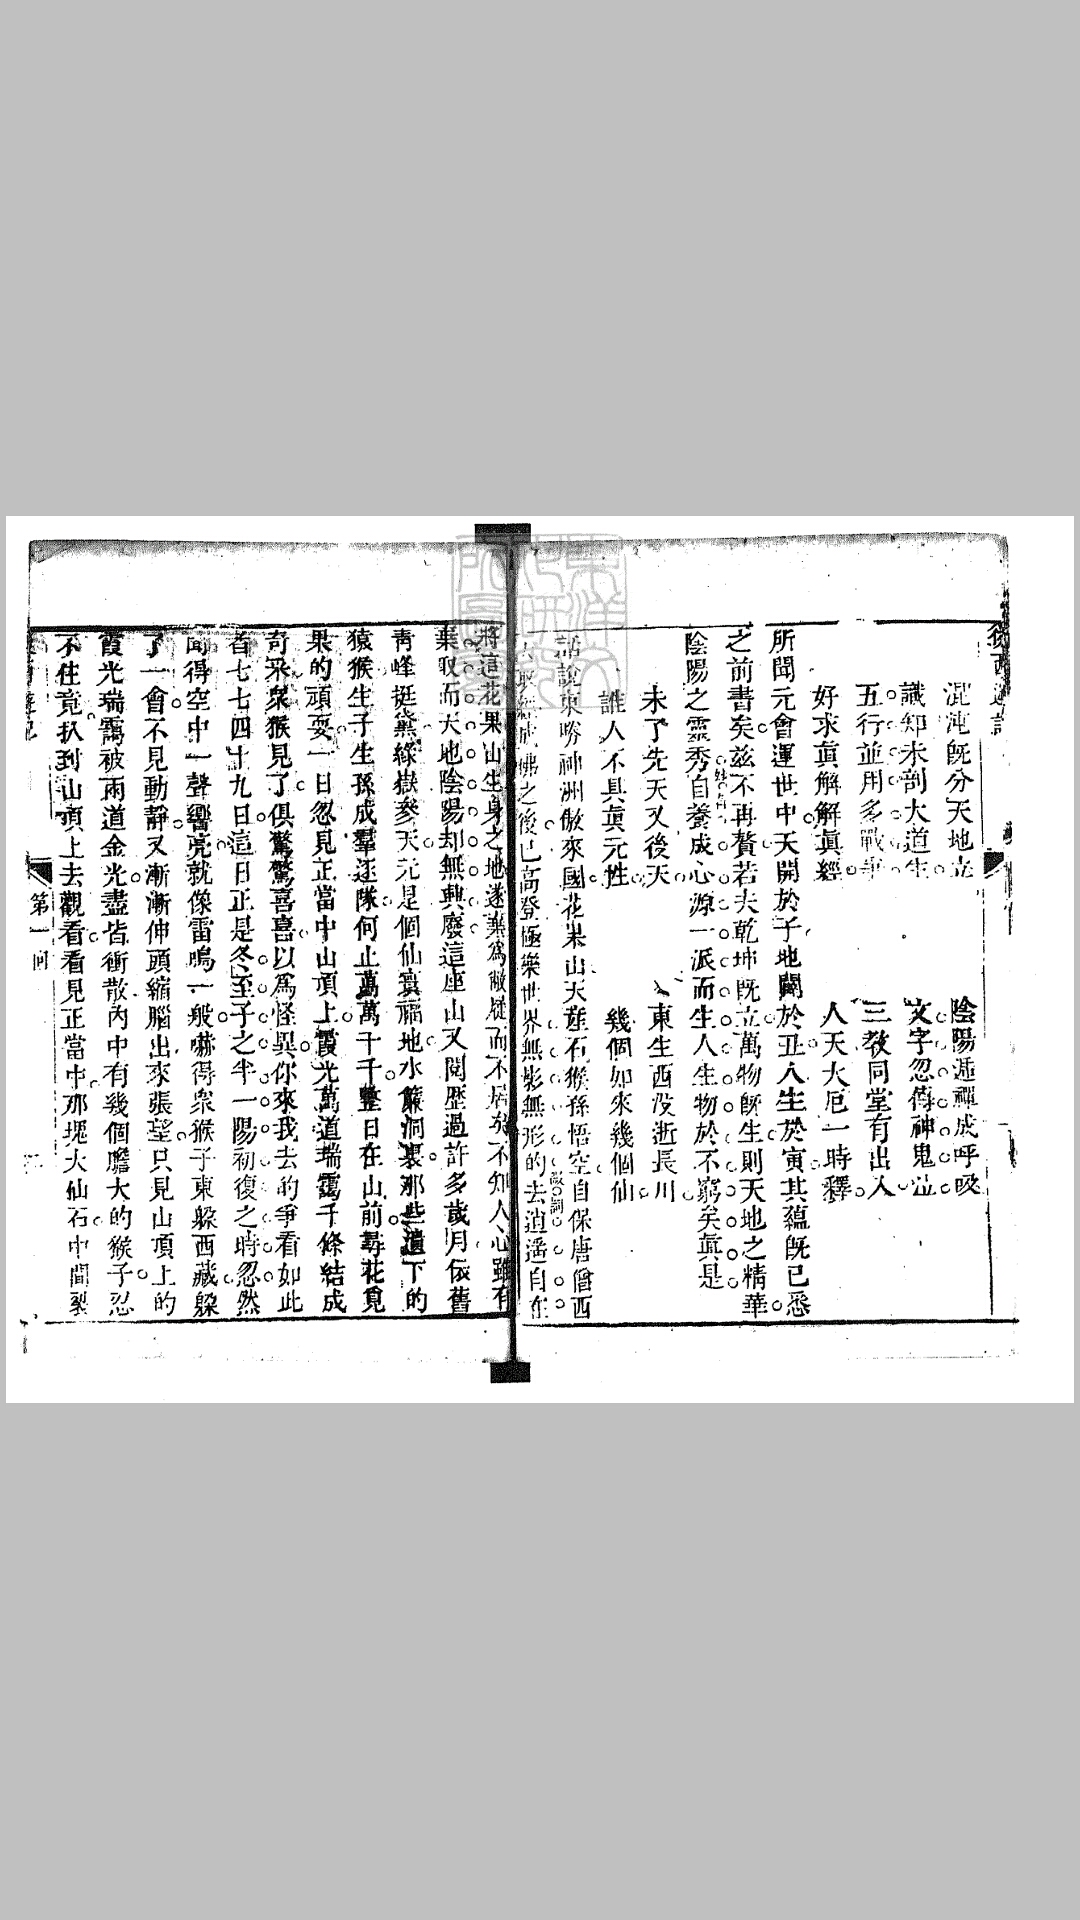 後西遊記
混沌旣分天地立　陰陽遞禪成呼吸
識知未剖大道生　文字忽傳神鬼泣
五行並用多戰爭　三敎同堂有出入
好求眞解解眞經　人天大厄一時釋
所聞元會運世中天開於子地闢於丑人生於寅其蘊旣已悉
之前書矣茲不再贅若夫乾坤旣立萬物旣生則天地之精華
陰陽之靈秀自養成心源一派而生人生物於不窮矣眞是
未了先天又後天　東生西沒逝長川
誰人不具眞元性　幾個如來幾個仙
話說東勝神洲傲來國花果山天產石猴孫悟空自保唐僧西
成佛之後已高登極樂世界無影無形的去逍遙自在
將這花果山生身之地遂棄爲敝屣而不居矣不知人心雖有
棄取而天地陰陽却無興廢這座山又閱歷過許多歲月依舊
靑峰挺黛綠嶽參天元是個仙寰福地水簾洞裏那些遺下的
猿猴生子生孫成羣逐隊何止萬萬千千整日在山前尋花覓
果的頑耍一日忽見正當中山頂上霞光萬道瑞靄千條結成
奇采衆猴見了俱驚驚喜喜以爲怪異你來我去的爭看如此
者七七四十九日這日正是冬至子之半一陽初復之時忽然
聞得空中一聲響亮就像雷鳴一般嚇得衆猴子東躱西藏躱
了一會不見動靜又漸漸伸頭縮腦出來張望只見山頂上的
霞光瑞靄被兩道金光盡皆衝散內中有幾個膽大的猴子忍
不住竟扒到山頂上去觀看看見正當中那塊大仙石中間裂
第一回